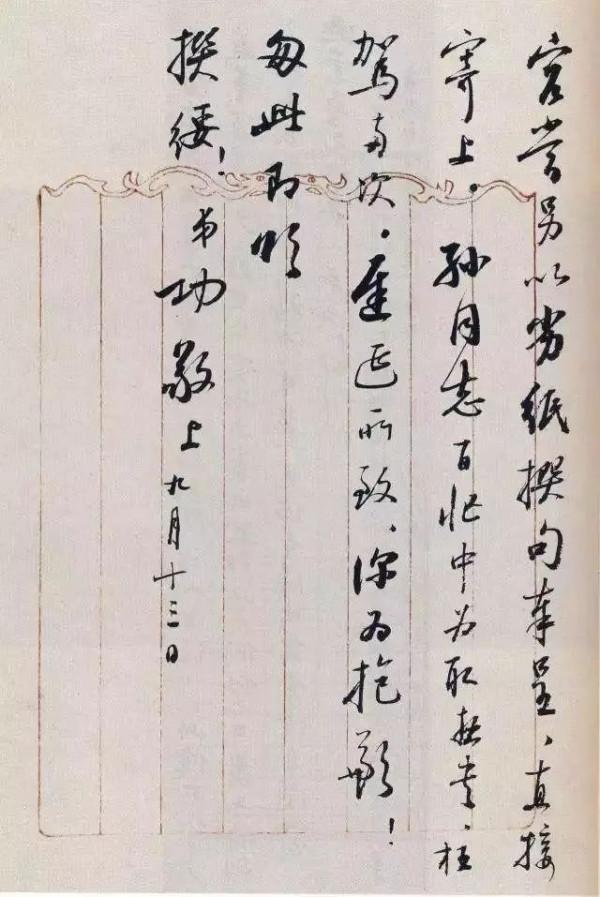 容当另以劣纸撰句奉呈、直接
寄上。孙同志百忙中为取拙书、枉
驾两次。迟延所致、深为抱歉！
匆此即颂
撰绥！
弟功敬上九月十三日